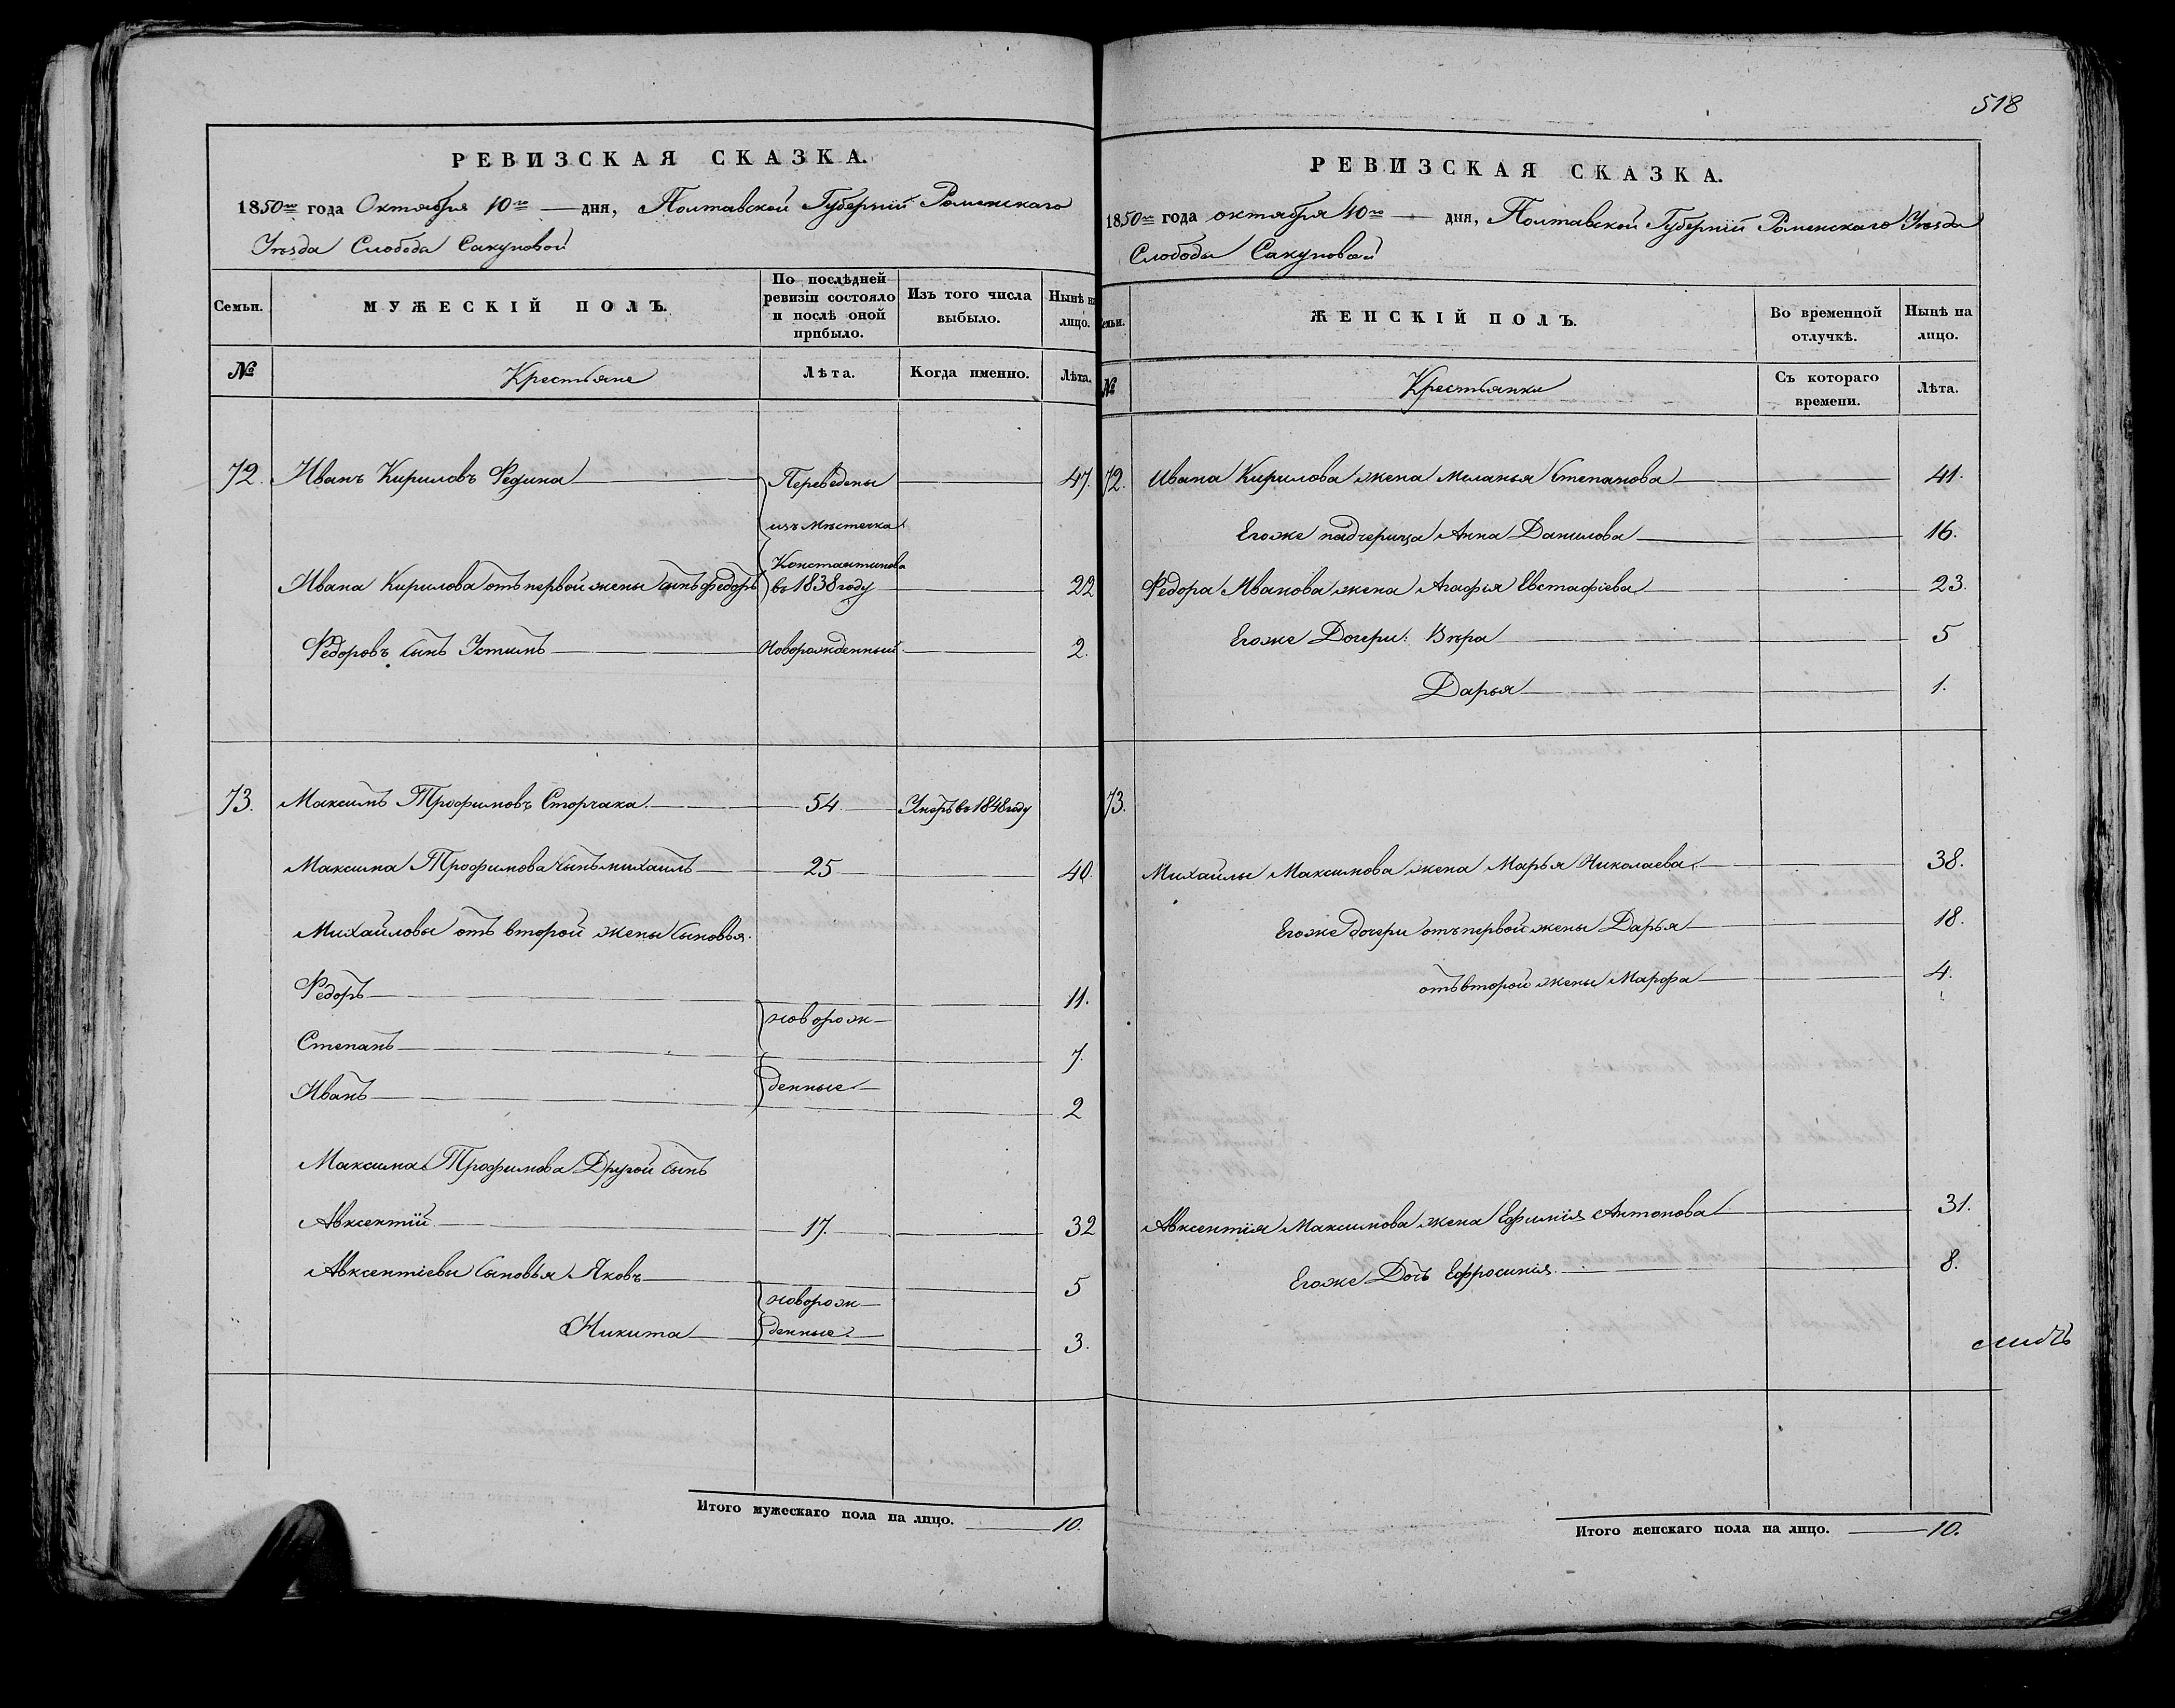 518
РЕВИЗСКАЯ СКАЗКА.
1850го года Октября 10го дня, Полтавской Губерніи Роменскаго
Уѣзда Слобода Сакуновой
Семьи.
МУЖЕСКІЙ ПОЛЪ.
По послѣдней ревизіи состояло и послѣ оной прибыло.
Изъ того числа выбыло.
Нынѣ на лицо.
№
Крестьяне
Лѣта.
Когда именно.
Лѣта.
72. Иванъ Кириловъ Федина Переведены 47.
изъ мѣстечка
Константинова
Ивана Кирилова отъ первой жены сынъ федоръ въ 1838 году 22
Федоровъ сынъ Устимъ Новорожденный 2.
73. Максимъ Трофимовъ Сторчака. 54. Умеръ въ 1848 году
Максима Трофимова сынъ михаилъ 25 40.
Михайловы отъ второй жены сыновья.
Федоръ 11.
новорож
Степанъ 7.
денные
Иванъ 2
Максима Трофимова Другой сынъ
Авксентій 17. 32
Авксентіевы сыновья Яковъ 5
новорож
Никита денные. 3.
Итого мужескаго пола на лицо. 10.
РЕВИЗСКАЯ СКАЗКА.
1850го года октября 10го дня, Полтавской Губерніи Роменскаго Уѣзда
Слободы Сакуновой
Семьи.
ЖЕНСКІЙ ПОЛЪ.
Во временной отлучкѣ.
Нынѣ на лицо.
№
Крестьянки
Съ котораго времени.
Лѣта.
72. Ивана Кирилова жена Меланья Степанова 41.
Егоже падчерица Анна Данилова 16.
Федора Иванова жена Агафія Евстафіева 23.
Егоже Дочери: Вѣра 5
Дарья 1.
73.
Михайлы Максимова жена Марья Николаева 38.
Егоже дочери отъ первой жены Дарья 18.
отъ второй жены Марфа 4.
Авксентія Максимова жена Ефимія Антонова 31.
Егоже Дочь Ефросинія. 8.
Итого женскаго пола на лицо. 10.